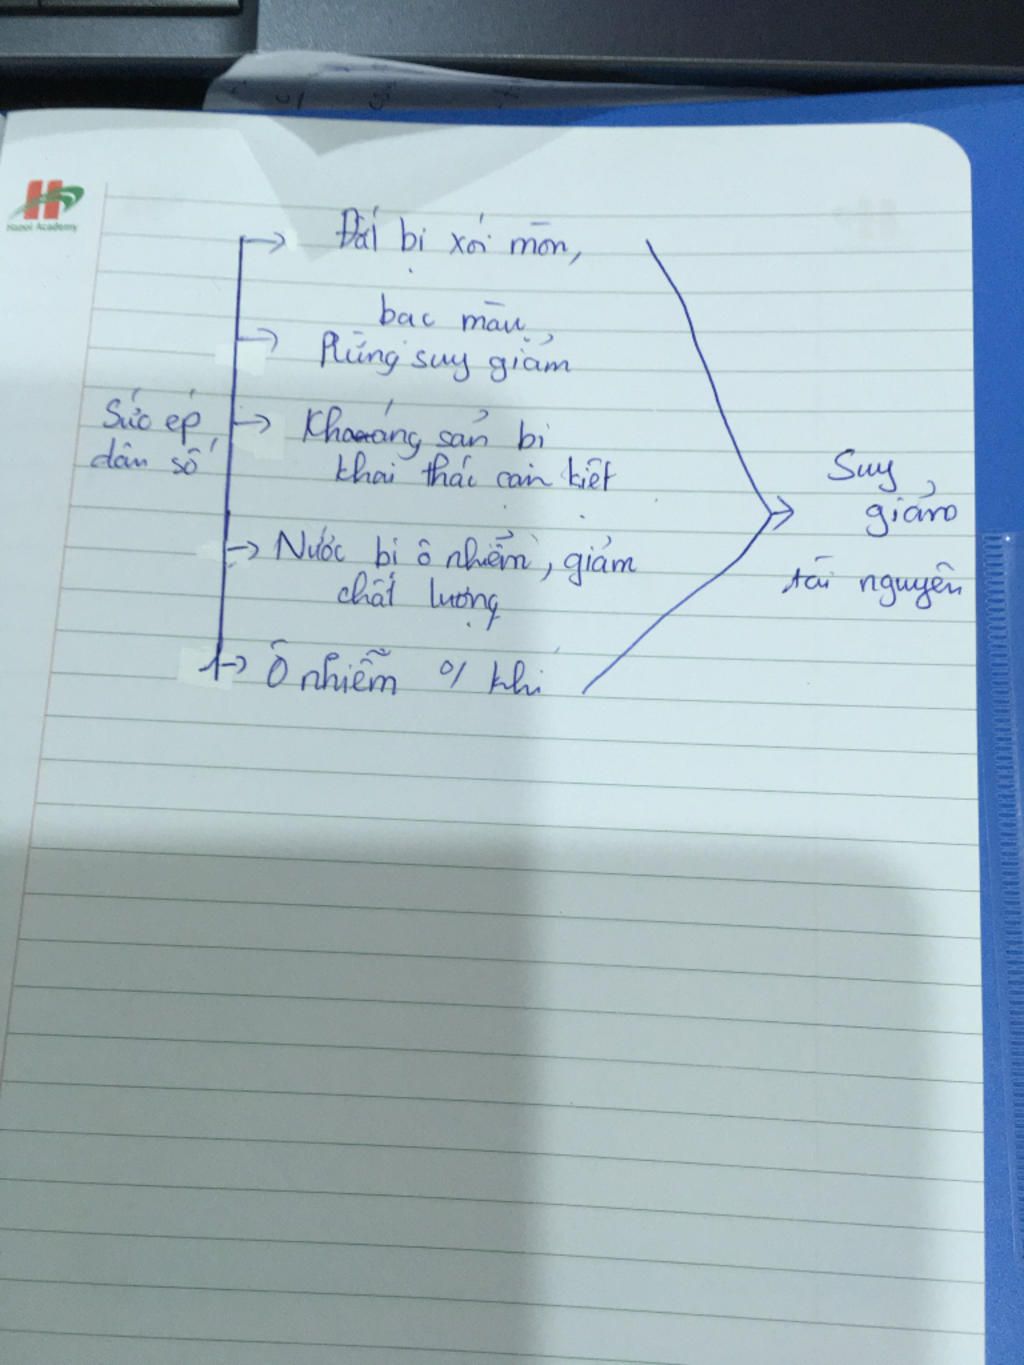 H
Hanoi Academy
Đất bị xói mòn,
bạc màu
Rừng suy giảm
Sức ép
dân số
Khoáng sản bị
khai thác cạn kiệt
Nước bị ô nhiễm, giảm
chất lượng
Ô nhiễm o/ khí
Suy
giảm
tài nguyên